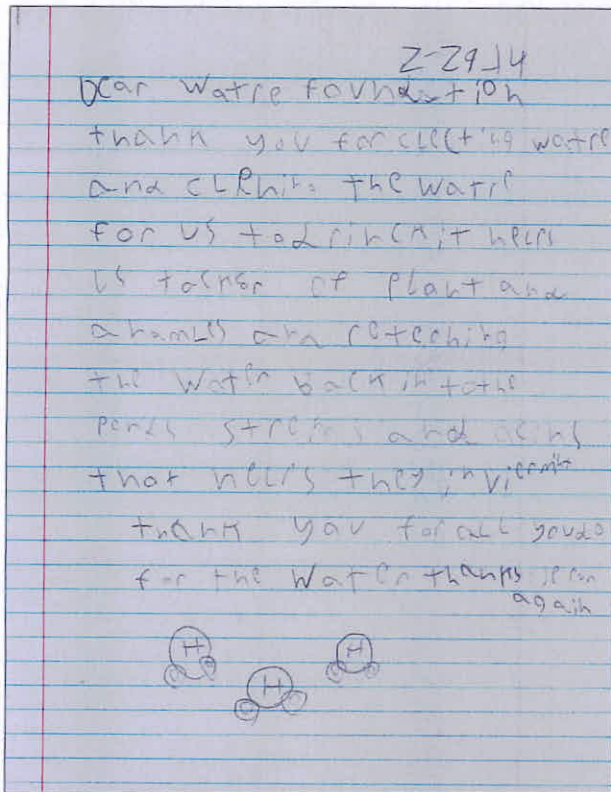 2-29-14
Dear watre foundation
thank you for clecting watre
and cLening the watre
for us todrinck it helps
us of Plant and
anamLs and reteching
the water back in tothe
streams and
that helps they invierment
thank you for all you do
for the water thanks
again
H H H